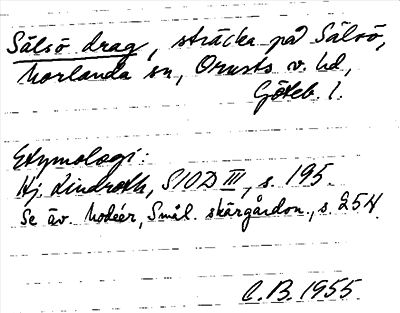 Sälsö drag, sträcka på Sälsö,
Morlanda sn, Orusts v. hd,
Göteb. l.
Etymologi:
Hj. Lindroth, SIOD III, s. 195
Se äv. Modéer, Smål. skärgårdsn., s. 254
C.B. 1955